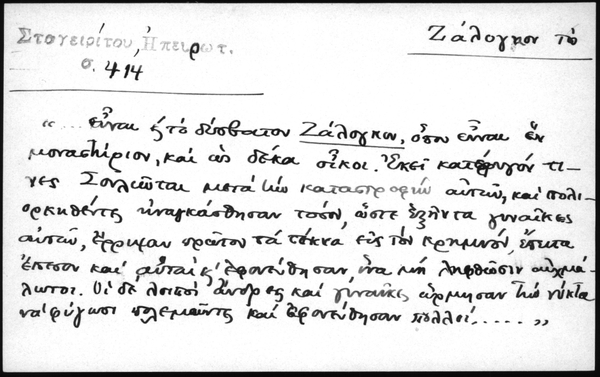 Σταγειρίτου, Ἠπειρωτ.
σ. 414
Ζάλογκον τὸ
"... εἶναι ϛ τὸ δύσβατον Ζάλογκον, ὅπου εἶναι ἓν
μοναστήριον, καὶ ὡς δέκα οἶκοι. Ἐκεῖ κατέφυγόν τι-
νες Σουλιῶται μετὰ τὴν καταστροφὴν αὐτῶν, καὶ πολι-
ορκηθέντες ἠναγκάσθησαν τόσον, ὥστε ἑξῆντα γυναῖκες
αὐτῶν, ἔρριψαν πρῶτον τὰ τέκνα εἰς τὸν κρημνόν, ἔπειτα
ἔπεσον καὶ αὐταὶ κ' ἐφονεύθησαν, ἵνα μὴ ληφθῶσιν αἰχμά-
λωτοι. Οἱ δὲ λοιποὶ ἄνδρες καὶ γυναῖκες ὥρμησαν τὴν νύκτα
νὰ φύγωσι πολεμοῦντες καὶ ἐφονεύθησαν πολλοί....."